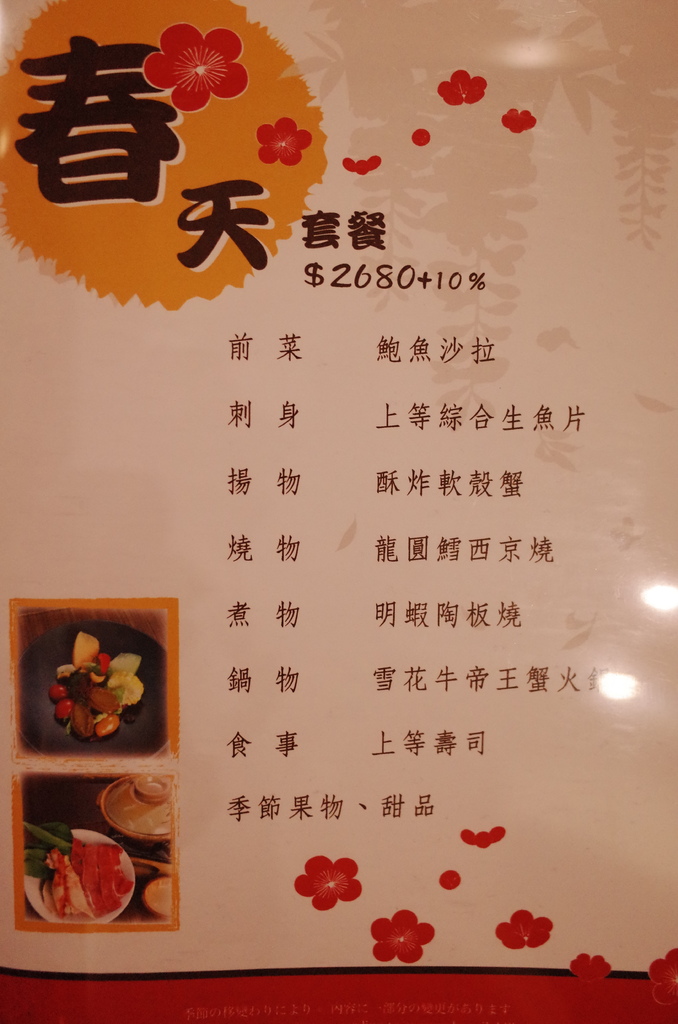 春天套餐
$2680+10%
前菜 鮑魚沙拉
刺身 上等綜合生魚片
揚物 酥炸軟殼蟹
燒物 龍圓鱈西京燒
煮物 明蝦陶板燒
鍋物 雪花牛帝王蟹火鍋
食事 上等壽司
季節果物、甜品
季節の移變わりにより、內容に一部分の變更があります